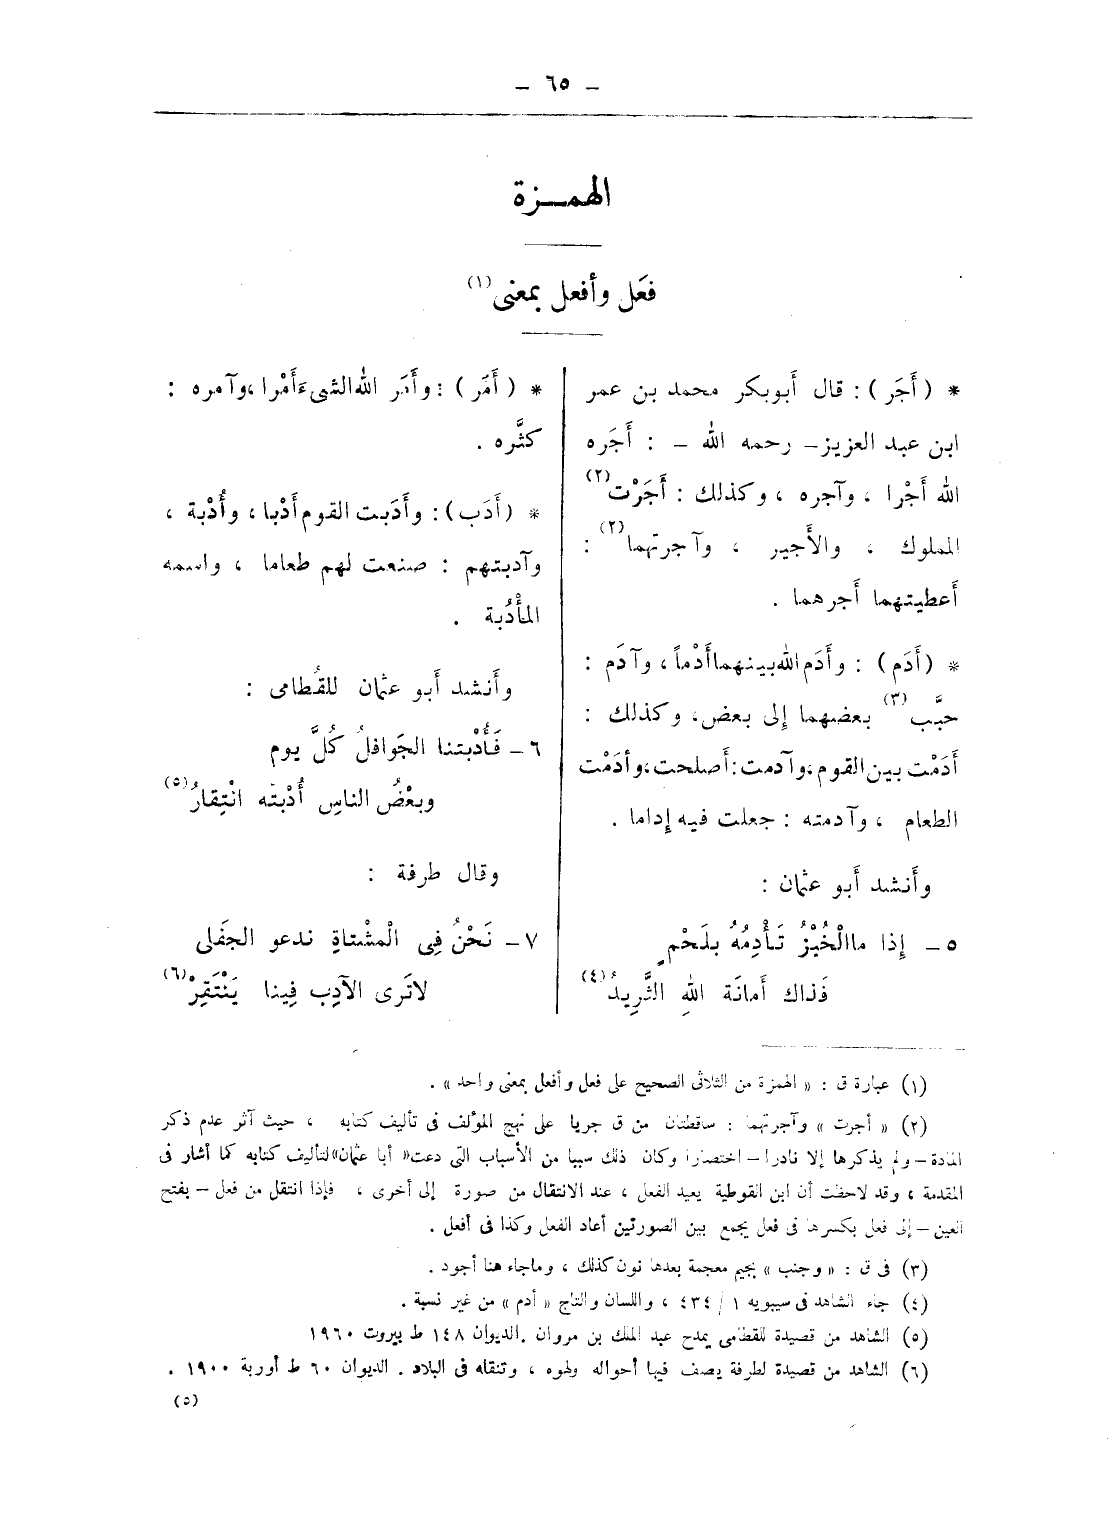 — ٦٥ —
الهمـزة
فعَل وأفعل بمعنى(١)
* (أَجَر) : قال أَبوبكر محمد بن عمر
ابن عبد العزيز – رحمه الله – : أَجَره
الله أَجْرا ، وآجره ، وكذلك : أَجَرْت(٢)
المملوك ، والأَجير ، وآجرتهما(٢) :
أَعطيتهما أَجرهما .
* (أَدَم) : وأَدَم الله بينهما أَدْماً ، وآدَم :
حبَّب(٣) بعضهما إلى بعض، وكذلك :
أَدَمْت بين القوم ،وآدمت : أَصلحت ،وأدَمْت
الطعام ، وآدمته : جعلت فيه إداما .
وأَنشد أَبو عثمان :
٥ – إِذا ما الْخُبْزُ تَأْدِمُهُ بلَحْمٍ
فَذاك أَمانَة اللهِ الثَّرِيدُ(٤)
* (أَمَر) : وأَمَر الله الشىءَ أَمْرا ،وآمره :
كثَّره .
* (أَدَب) : وأَدَبت القوم أَدْبا ، وأُدْبة ،
وآدبتهم : صنعت لهم طعاما ، واسمه
المأْدُبة .
وأَنشد أَبو عثمان للقُطامى :
٦ – فَأُدْبتنا الجَوافلُ كُلَّ يوم
وبعْضُ الناسِ أُدْبتُه انْتِقارُ(٥)
وقال طرفة :
٧ – نَحْنُ فِى الْمشْتاةِ ندعو الجفَلى
لاتَرى الآدِب فِينا يَنْتَقِرْ(٦)
(١) عبارة ق : « الهمزة من الثلاثى الصحيح على فعل وأفعل بمعنى واحد » .
(٢) « أجرت » وآجرتهما : ساقطتان من ق جريا على نهج المؤلف فى تأليف كتابه ، حيث آثر عدم ذكر
المادة – ولم يذكرها إلا نادرا – اختصارا وكان ذلك سببا من الأسباب التى دعت « أبا عثمان » لتأليف كتابه كما أشار فى
المقدمة ، وقد لاحظت أن ابن القوطية يعيد الفعل ، عند الانتقال من صورة إلى أخرى ، فإذا انتقل من فعل – بفتح
العين – إلى فعل بكسرها فى فعل يجمع بين الصورتين أعاد الفعل وكذا فى أفعل .
(٣) فى ق : « وجنب » بجيم معجمة بعدها نون كذلك ، وماجاء هنا أجود .
(٤) جاء الشاهد فى سيبويه ١ / ٤٣٤ ، واللسان والتاج « أدم » من غير نسبة .
(٥) الشاهد من قصيدة للقطامى يمدح عبد الملك بن مروان .الديوان ١٤٨ ط بيروت ١٩٦٠
(٦) الشاهد من قصيدة لطرفة يصف فيها أحواله ولهوه ، وتنقله فى البلاد . الديوان ٦٠ ط أوربة ١٩٠٠ .
(٥)